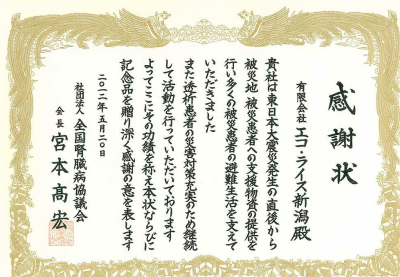 感謝状
有限会社 エコ・ライス新潟殿
貴社は東日本大震災発生の直後から
被災地 被災患者への支援物資の提供を
行い多くの被災患者の避難生活を支えて
いただきました
また透析患者の災害対策充実のため継続
して活動を行っていただいております
よってここにその功績を称え本状ならびに
記念品を贈り深く感謝の意を表します
二〇一二年五月二〇日
社団法人 全国腎臓病協議会
会長 宮本髙宏